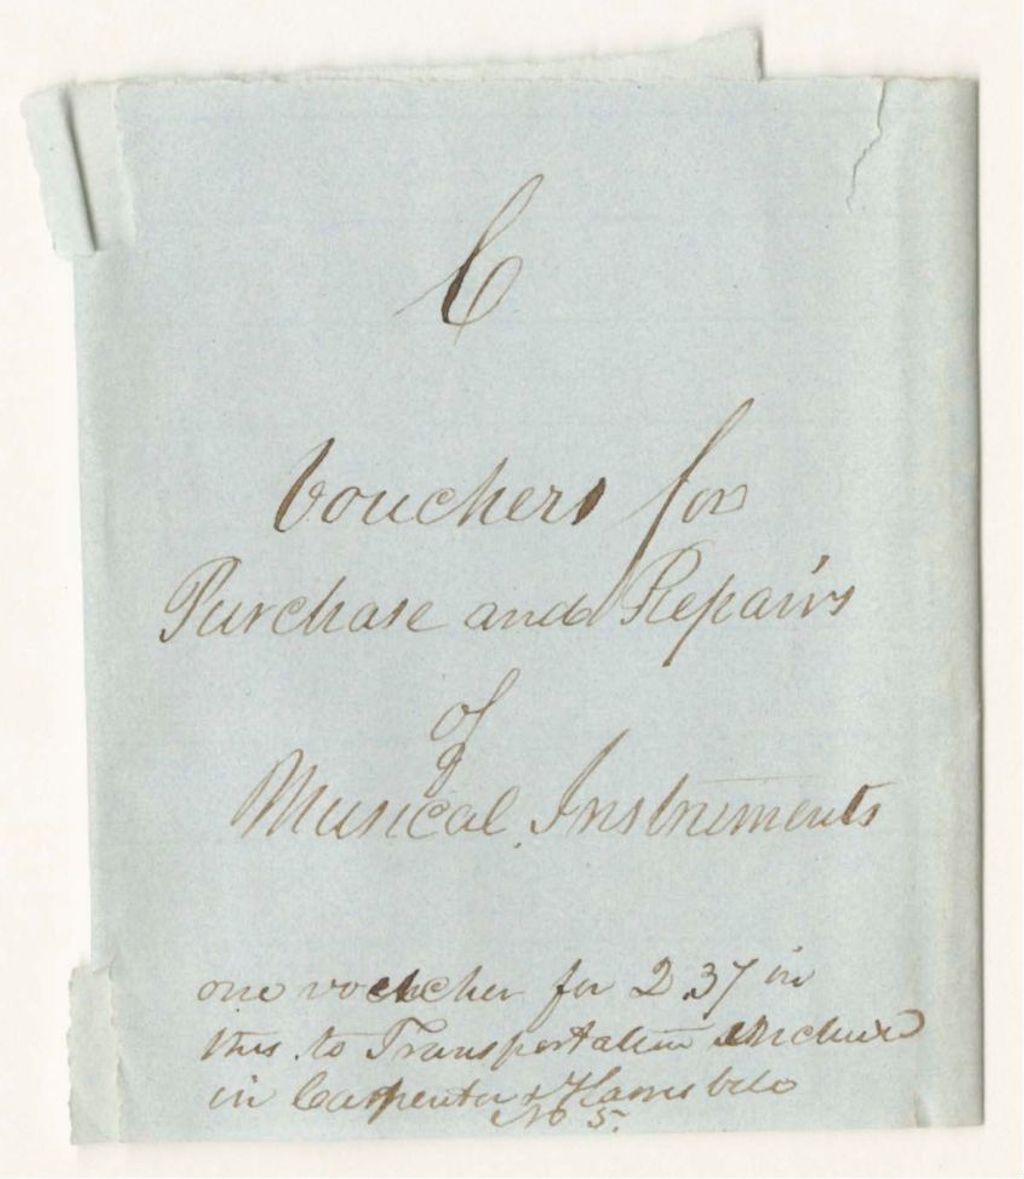 C
Vouchers for
Purchase and Repairs
of
Musical Instruments
one voucher for 2.37 in
this to Transportation
in Carpenter &
No 5.